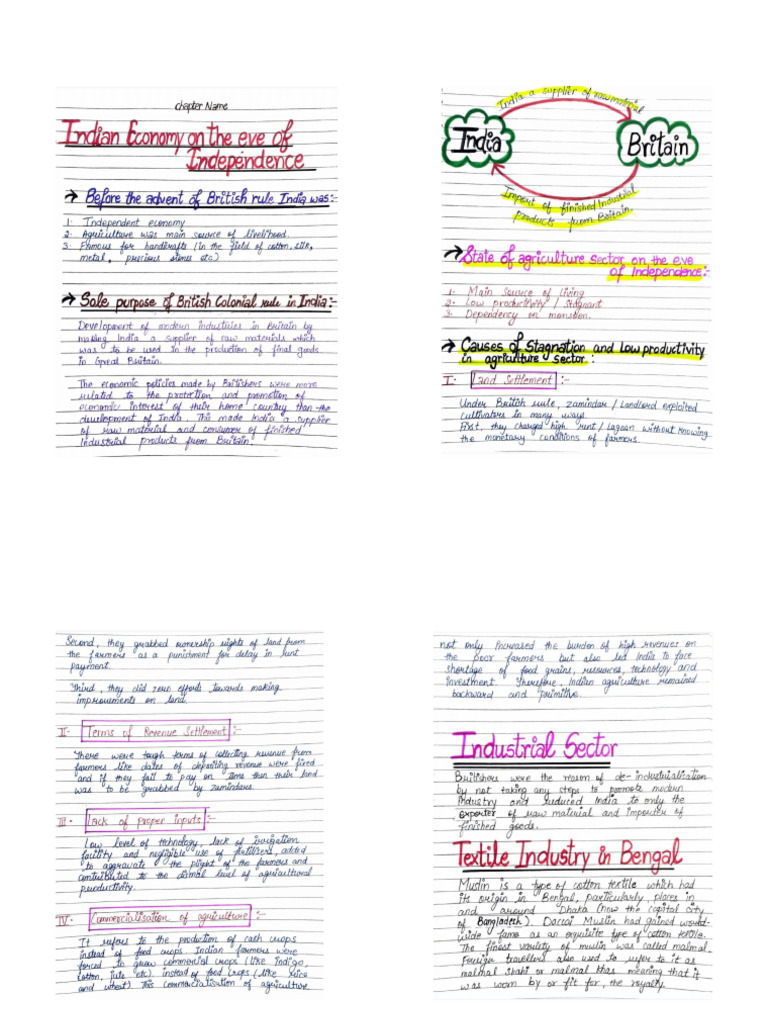 Chapter Name
Indian Economy on the eve of
Independence
→ Before the advent of British rule India was:-
1. Independent economy
2. Agriculture was main source of livelihood.
3. Famous for handicrafts (in the field of cotton, silk,
metal, precious stones etc)
→ Sole purpose of British Colonial rule in India:-
Development of modern industries in Britain by
making India a supplier of raw materials which
was to be used in the production of final goods
in Great Britain.
The economic policies made by Britishers were more
related to the protection and promotion of
economic interest of their home country than the
development of India. This made India a supplier
of raw material and consumer of finished
Industrial products from Britain.
India a supplier of raw material
India
Britain
Import of finished Industrial
products from Britain.
→ State of agriculture sector on the eve
of Independence:-
1. Main source of living
2. Low productivity / Stagnant
3. Dependency on monsoon.
→ Causes of Stagnation and Low productivity
in agriculture sector:
I- Land Settlement :-
Under British rule, zamindar / Landlord exploited
cultivators in many ways
First, they charged high rent / Lagaan without knowing
the monetary conditions of farmers.
Second, they grabbed ownership rights of land from
the farmers as a punishment for delay in rent
payment.
Third, they did zero efforts towards making
improvements on land.
II- Terms of Revenue Settlement :-
There were tough terms of collecting revenue from
farmers like dates of depositing revenue were fixed
and if they fail to pay on time then their land
was to be grabbed by zamindars.
III- Lack of proper inputs :-
Low level of technology, lack of irrigation
facility and negligible use of fertilizers, added
to aggravate the plight of the farmers and
contributed to the dismal level of agricultural
productivity.
IV- Commercialisation of agriculture :-
It refers to the production of cash crops
instead of food crops. Indian farmers were
forced to grow commercial crops (like indigo,
cotton, jute etc) instead of food crops (like rice
and wheat) This commercialisation of agriculture
not only increased the burden of high revenues on
the poor farmers but also led India to face
shortage of food grains, resources, technology and
investment. Therefore, Indian agriculture remained
backward and primitive.
Industrial Sector
Britishers were the reason of de-industrialisation
by not taking any steps to promote modern
industry and reduced India to only the
exporter of raw material and importer of
finished goods.
Textile Industry in Bengal
Muslin is a type of cotton textile which had
its origin in Bengal, particularly, places in
and around Dhaka (now the capital city
of Bangladesh). Daccai Muslin had gained world-
wide fame as an exquisite type of cotton textile.
The finest variety of muslin was called malmal.
Foreign travellers also used to refer to it as
malmal shahi or malmal khas meaning that it
was worn by or fit for, the royalty.